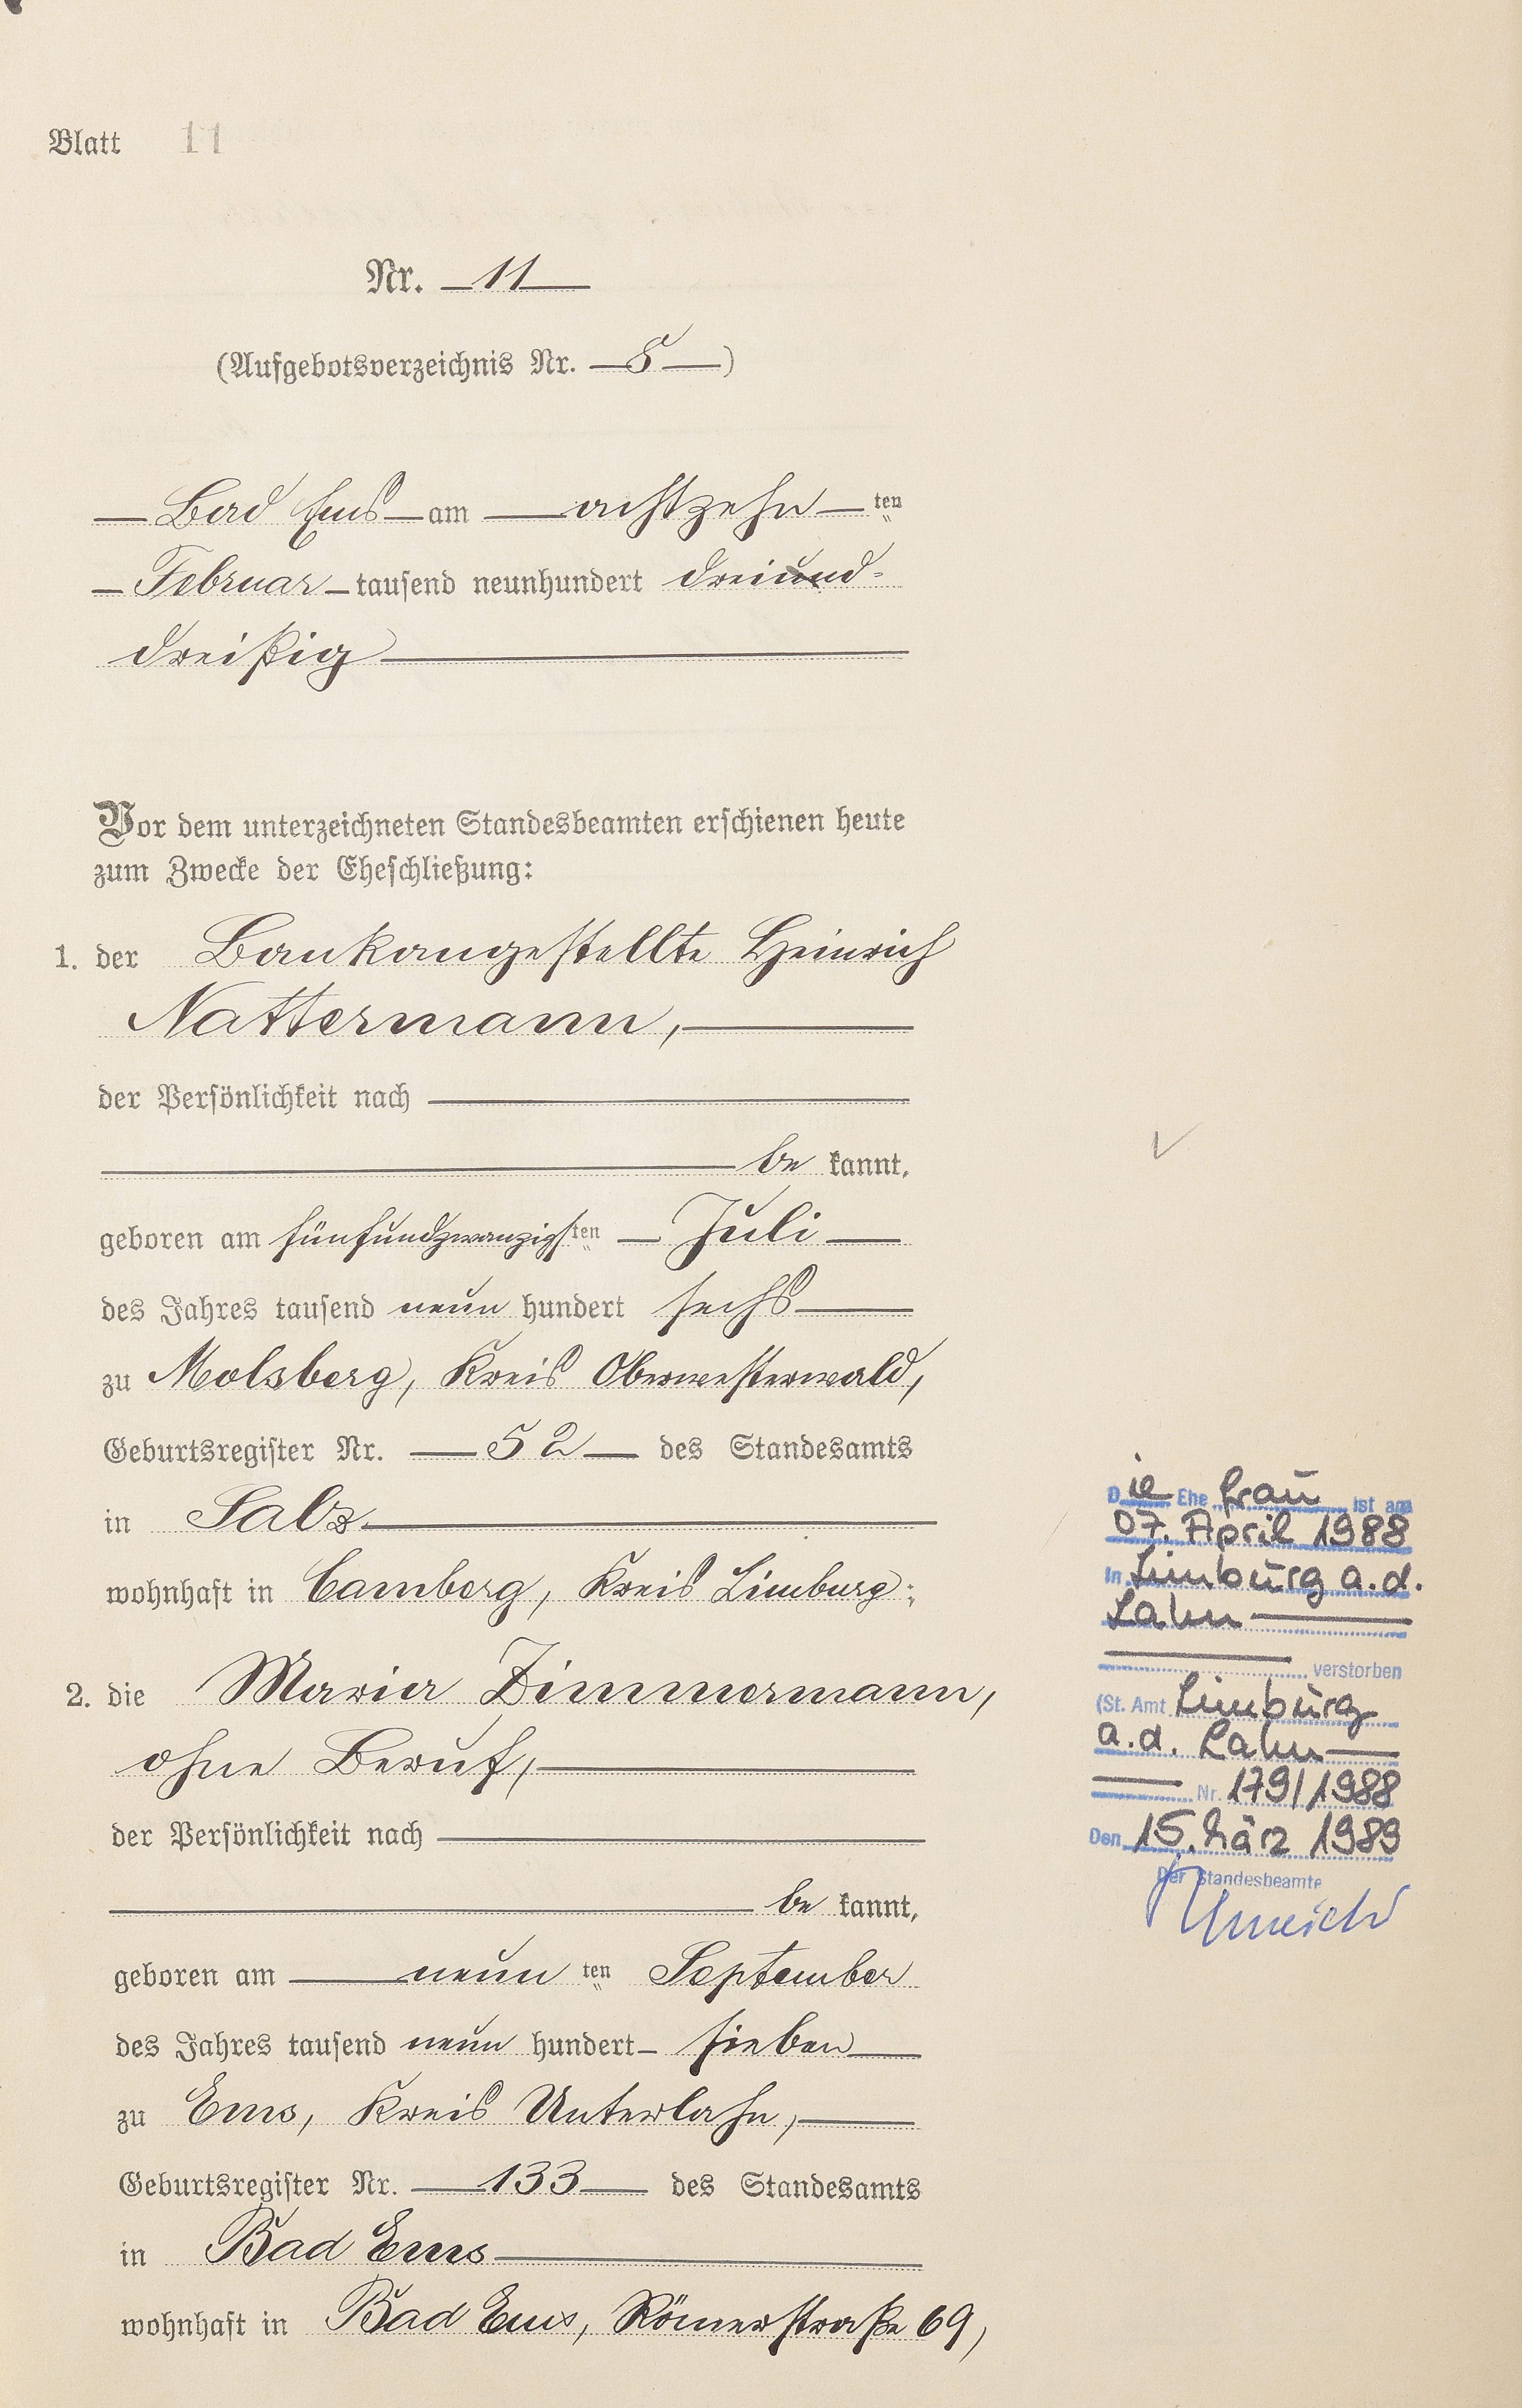 Blatt 11
Nr. 11
(Aufgebotsverzeichnis Nr. 8)
Bad Ems am achtzehn ten
Februar tausend neunhundert dreiund-
dreißig
Vor dem unterzeichneten Standesbeamten erschienen heute
zum Zwecke der Eheschließung:
1. der Bankangestellte Heinrich
Nattermann,
der Persönlichkeit nach
be kannt,
geboren am fünfundzwanzigsten Juli
des Jahres tausend neun hundert sechs
zu Molsberg, Kreis Oberwesterwald,
Geburtsregister Nr. 52 des Standesamts
in Salz
wohnhaft in Camberg, Kreis Limburg;
2. die Maria Zimmermann,
ohne Beruf,
der Persönlichkeit nach
be kannt,
geboren am neun ten September
des Jahres tausend neun hundert sieben
zu Ems, Kreis Unterlahn,
Geburtsregister Nr. 133 des Standesamts
in Bad Ems
wohnhaft in Bad Ems, Römerstraße 69,
Die Ehefrau ist am
07. April 1988
in Limburg a.d.
Lahn
verstorben
(St. Amt Limburg
a.d. Lahn
Nr. 179/1988
Den 15. März 1989
Der Standesbeamte